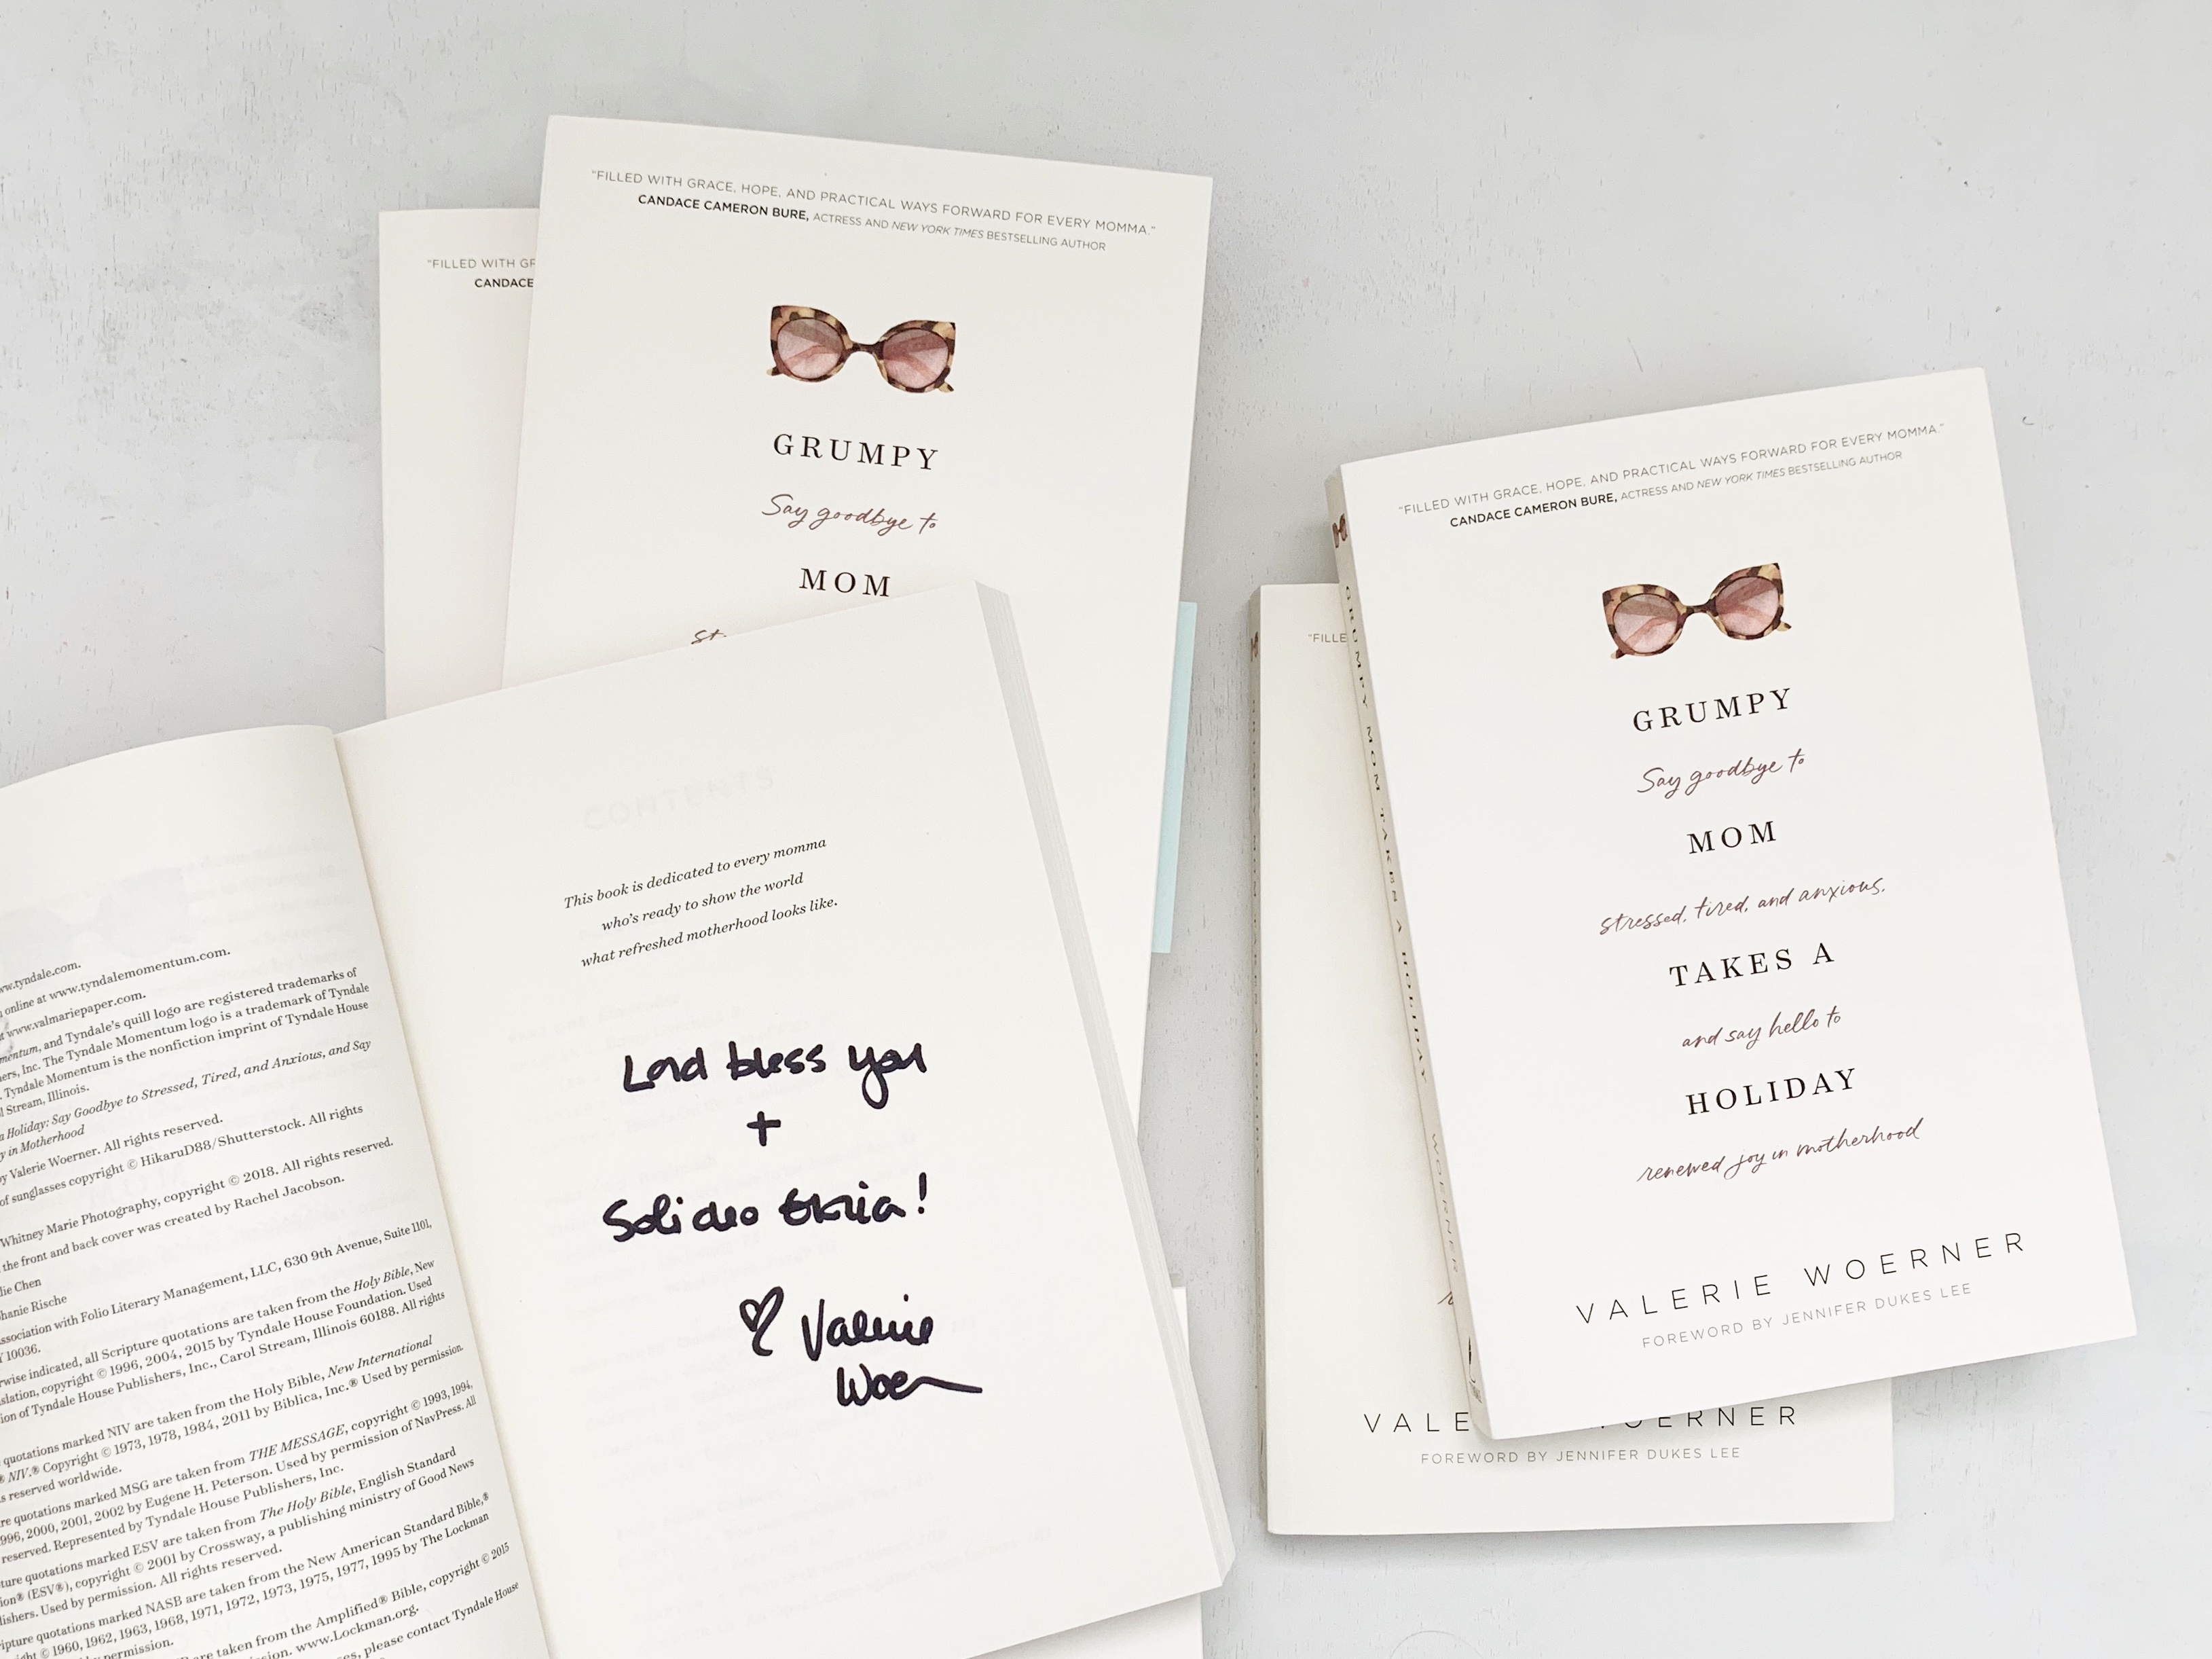 "FILLED WITH GR
CANDACE
"FILLED WITH GRACE, HOPE, AND PRACTICAL WAYS FORWARD FOR EVERY MOMMA."
CANDACE CAMERON BURE, ACTRESS AND NEW YORK TIMES BESTSELLING AUTHOR
GRUMPY
Say goodbye to
MOM
st
ww.tyndale.com.
online at www.tyndalemomentum.com.
at www.valmariepaper.com.
mentum, and Tyndale's quill logo are registered trademarks of
ers, Inc. The Tyndale Momentum logo is a trademark of Tyndale
. Tyndale Momentum is the nonfiction imprint of Tyndale House
l Stream, Illinois.
a Holiday: Say Goodbye to Stressed, Tired, and Anxious, and Say
y in Motherhood
by Valerie Woerner. All rights reserved.
of sunglasses copyright © HikaruD88/Shutterstock. All rights
Whitney Marie Photography, copyright © 2018. All rights reserved.
the front and back cover was created by Rachel Jacobson.
lie Chen
hanie Rische
ssociation with Folio Literary Management, LLC, 630 9th Avenue, Suite 1101,
Y 10036.
rwise indicated, all Scripture quotations are taken from the Holy Bible, New
slation, copyright © 1996, 2004, 2015 by Tyndale House Foundation. Used
ion of Tyndale House Publishers, Inc., Carol Stream, Illinois 60188. All rights
quotations marked NIV are taken from the Holy Bible, New International
® NIV.® Copyright © 1973, 1978, 1984, 2011 by Biblica, Inc.® Used by permission.
s reserved worldwide.
re quotations marked MSG are taken from THE MESSAGE, copyright © 1993, 1994,
996, 2000, 2001, 2002 by Eugene H. Peterson. Used by permission of NavPress. All
reserved. Represented by Tyndale House Publishers, Inc.
ture quotations marked ESV are taken from The Holy Bible, English Standard
ion® (ESV®), copyright © 2001 by Crossway, a publishing ministry of Good News
lishers. Used by permission. All rights reserved.
ripture quotations marked NASB are taken from the New American Standard Bible,®
right © 1960, 1962, 1963, 1968, 1971, 1972, 1973, 1975, 1977, 1995 by The Lockman
by permission.
are taken from the Amplified® Bible, copyright © 2015
ission. www.Lockman.org.
es, please contact Tyndale House
CONTENTS
This book is dedicated to every momma
who's ready to show the world
what refreshed motherhood looks like.
Lord bless you
+
Soli deo Gloria!
♡ Valerie
Woer
"FILLE
VALE WOERNER
FOREWORD BY JENNIFER DUKES LEE
GRUMPY MOM TAKES A HOLIDAY WOERNER
"FILLED WITH GRACE, HOPE, AND PRACTICAL WAYS FORWARD FOR EVERY MOMMA."
CANDACE CAMERON BURE, ACTRESS AND NEW YORK TIMES BESTSELLING AUTHOR
GRUMPY
Say goodbye to
MOM
stressed, tired, and anxious,
TAKES A
and say hello to
HOLIDAY
renewed joy in motherhood
VALERIE WOERNER
FOREWORD BY JENNIFER DUKES LEE